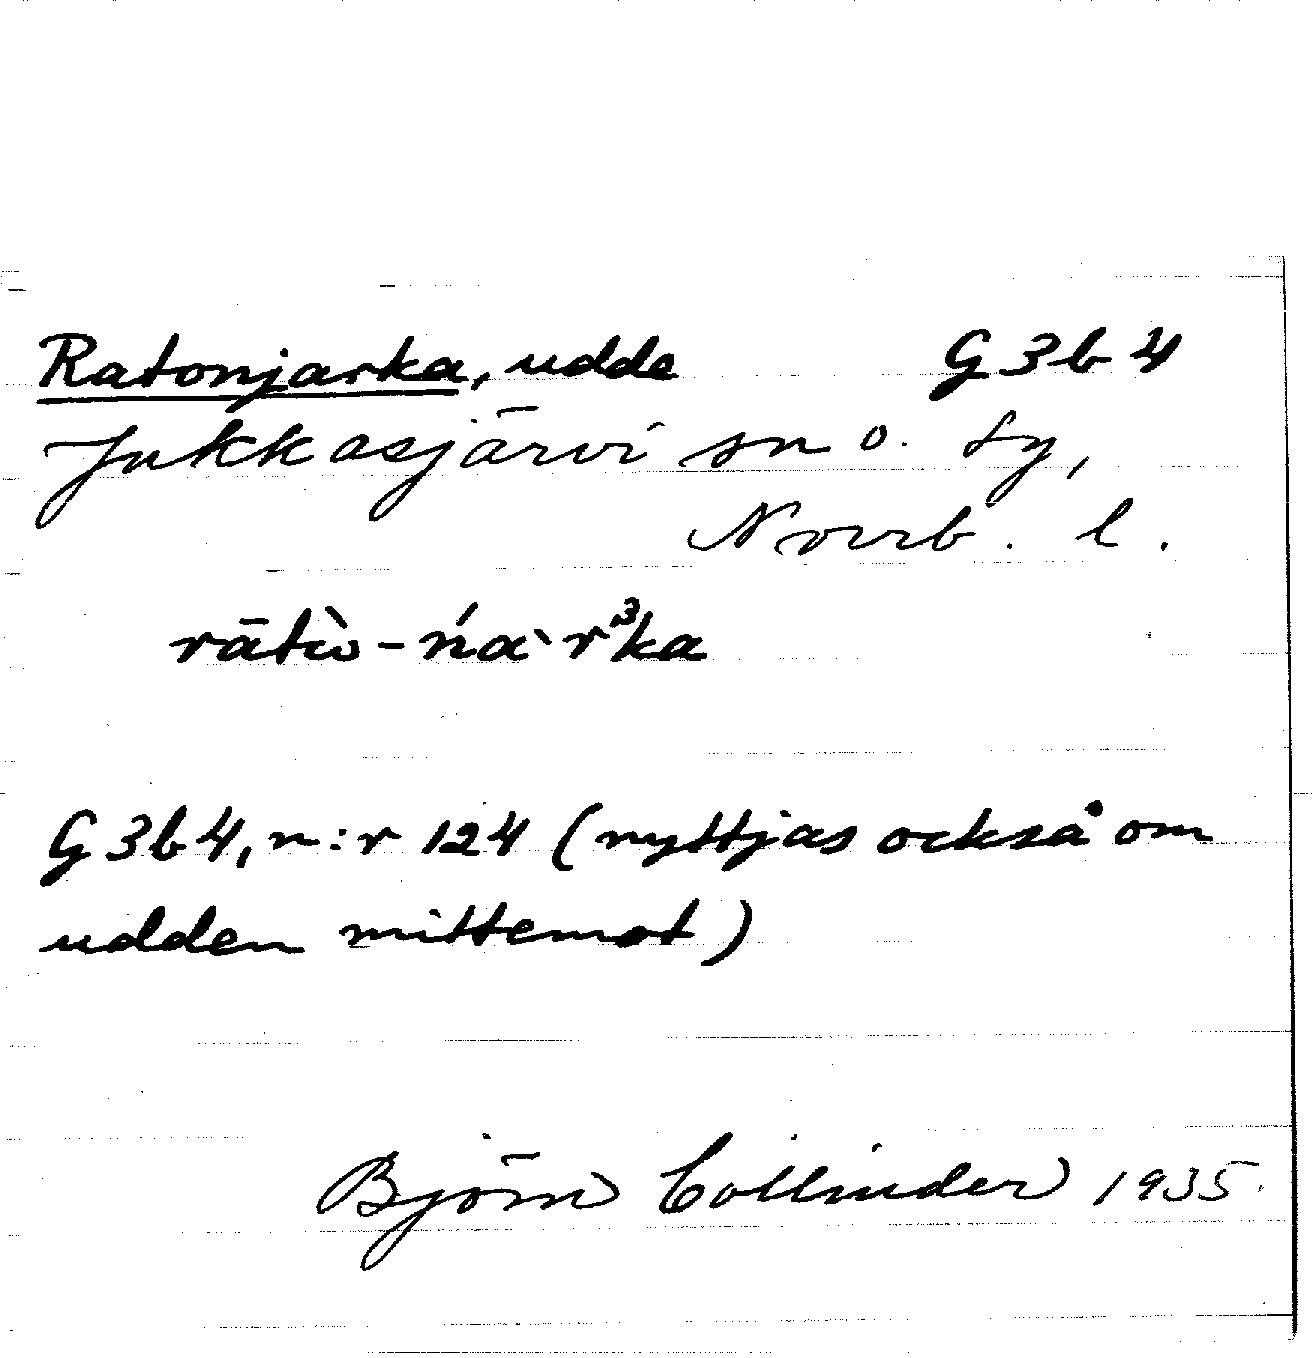 Ratonjarka, udde G 3 b 4
Jukkasjärvi sn o. tg,
Norrb. l.
rātὼ-ńa`rᶾka
G 3 b 4, n:r 124 (nyttjas också om
udden mittemot)
Björn Collinder 1935.